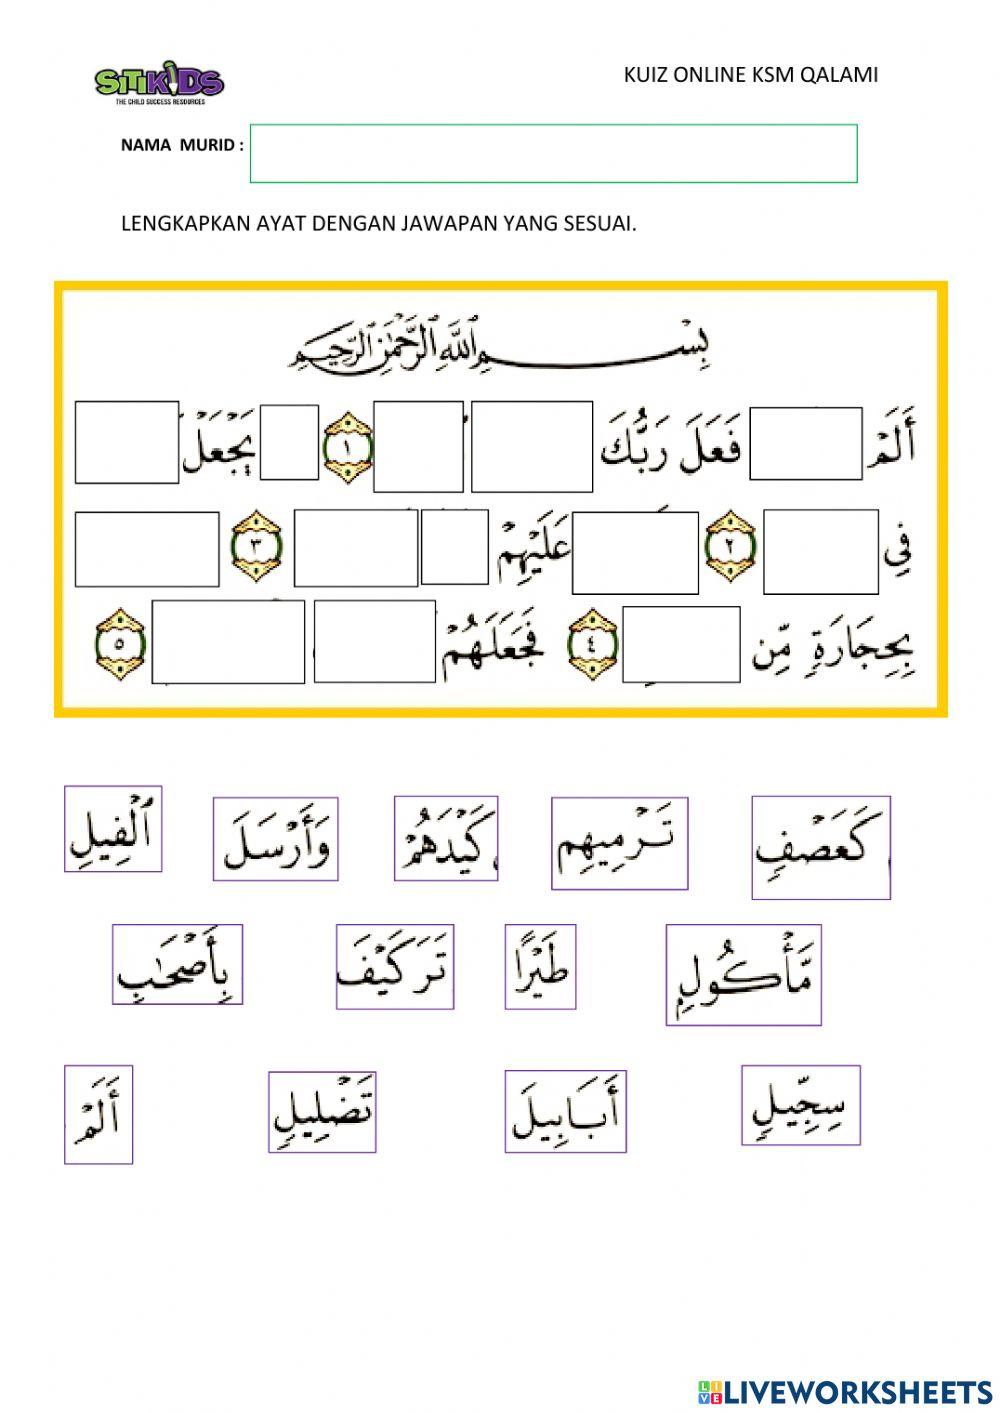 SITIKIDS
THE CHILD SUCCESS RESOURCES
KUIZ ONLINE KSM QALAMI
NAMA MURID :
LENGKAPKAN AYAT DENGAN JAWAPAN YANG SESUAI.
بِسْمِ ٱللَّهِ ٱلرَّحْمَٰنِ ٱلرَّحِيمِ
أَلَمْ فَعَلَ رَبُّكَ ١ يَجْعَلْ
فِى ٢ عَلَيْهِمْ ٣
بِحِجَارَةٍ مِّن ٤ فَجَعَلَهُمْ ٥
كَعَصْفٍ تَرْمِيهِم كَيْدَهُمْ وَأَرْسَلَ ٱلْفِيلِ
مَّأْكُولٍ طَيْرًا تَرَ كَيْفَ بِأَصْحَٰبِ
سِجِّيلٍ أَبَابِيلَ تَضْلِيلٍ أَلَمْ
LIVEWORKSHEETS